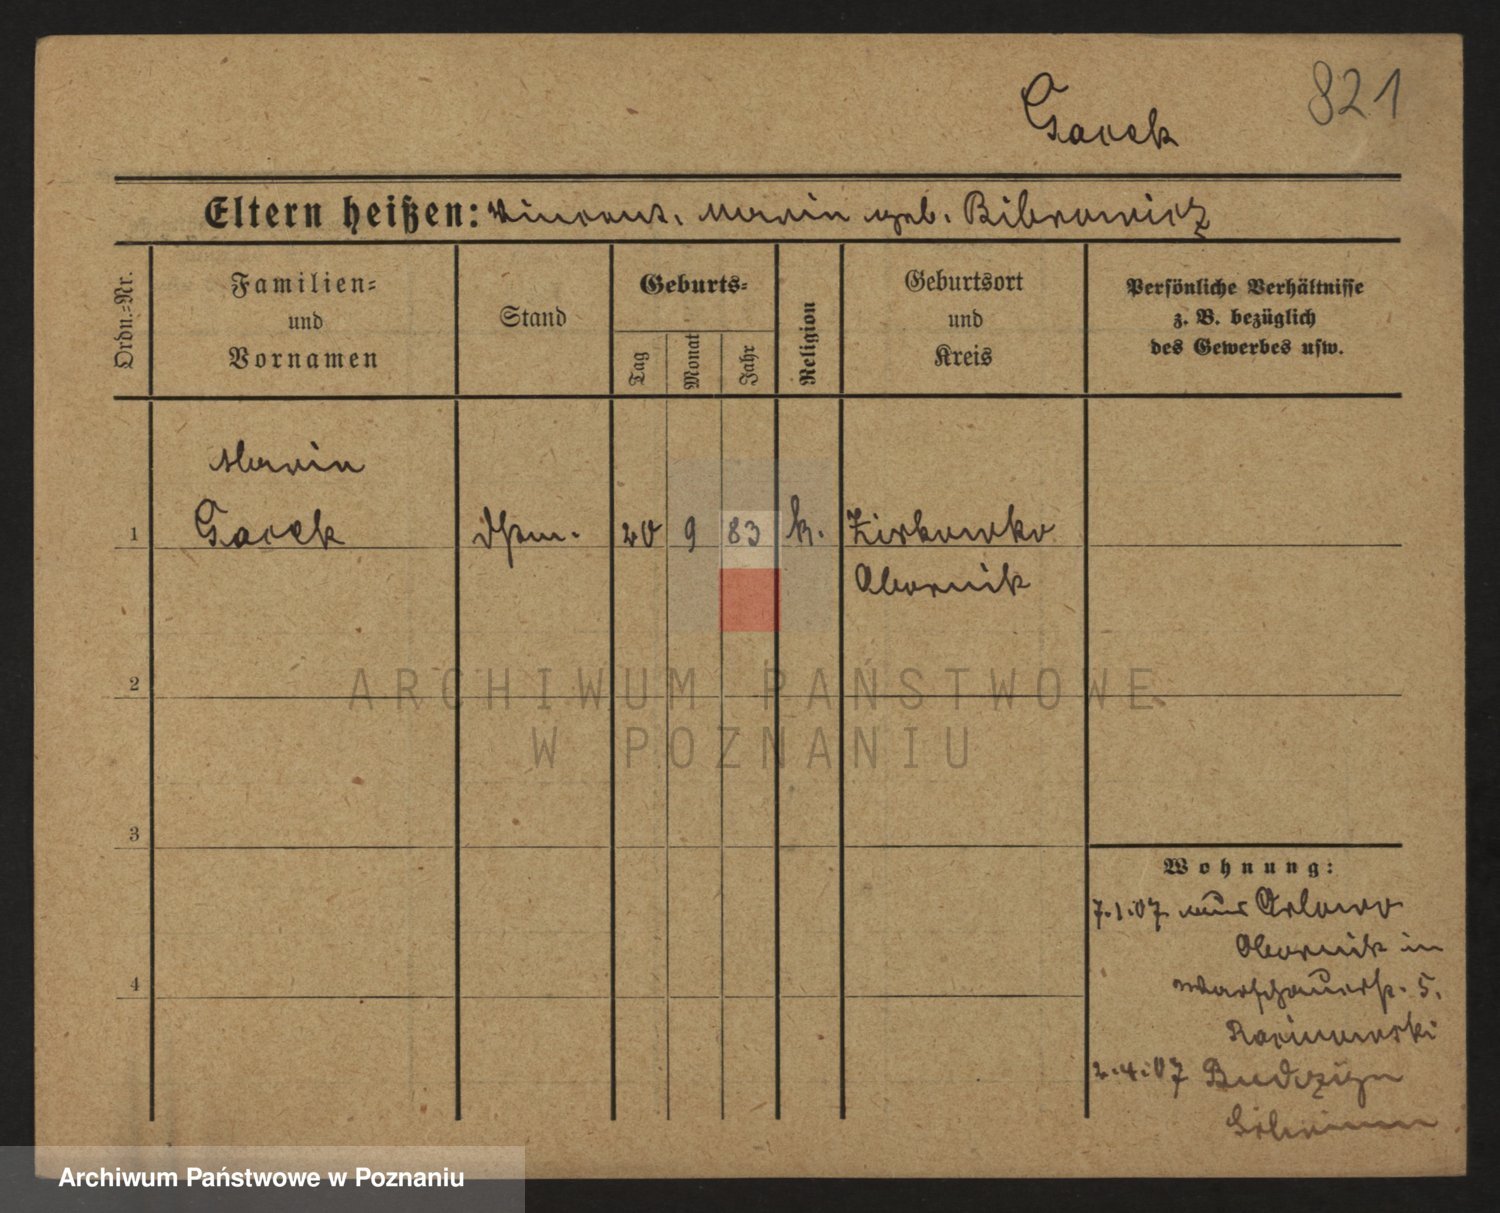 821
Gacek
Eltern heißen: Vincent, Maria geb. Bibrowicz
Ordn.-Nr.
Familien-
und
Vornamen
Stand
Geburts-
Tag
Monat
Jahr
Religion
Geburtsort
und
Kreis
Persönliche Verhältnisse
z. B. bezüglich
des Gewerbes usw.
Maria
1 Gacek 20 9 83 k. Zirkowko
Obornik
2
3
4
Wohnung:
7.1.07 aus Orlowo
Obornik in
Warschauerstr. 5.
2.4.07 Budczyn
ARCHIWUM PAŃSTWOWE
W POZNANIU
Archiwum Państwowe w Poznaniu